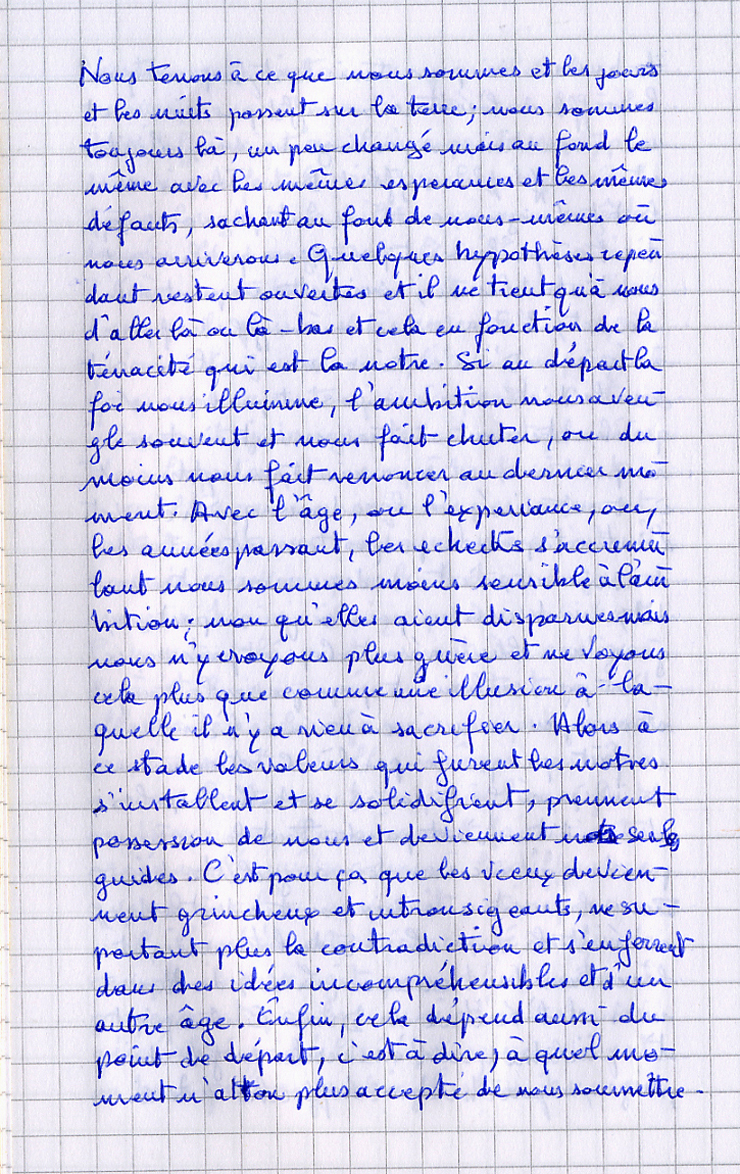 Nous tenons à ce que nous sommes et les jours
et les nuits passent sur la terre; nous sommes
toujours là, un peu changé mais au fond le
même avec les mêmes esperances et les mêmes
défauts, sachant au font de nous-mêmes où
nous arriverons. Quelques hypothèses cepen
dant restent ouvertes et il ne tient qu'à nous
d'aller là ou là-bas et cela en fonction de la
ténacité qui est la notre. Si au départ la
foi nous illumine, l'ambition nous aveu-
gle souvent et nous fait chuter, ou du
moins nous fait renoncer au dernier mo-
ment. Avec l'âge, ou l'experiance, ou,
les années passant, les echecks s'accumu
lant nous sommes moins sensible à l'am
bition; non qu'elles aient disparues mais
nous n'y croyons plus guère et ne voyons
cela plus que comme une illusion à la-
quelle il n'y a rien à sacrifier. Alors à
ce stade les valeurs qui furent les notres
s'installent et se solidifient, prennent
possession de nous et deviennent nos seuls
guides. C'est pour ça que les vieux devien-
nent grincheux et intransigeants, ne su-
portant plus la contradiction et s'enferrent
dans des idées incompréhensibles et d'un
autre âge. Enfin, cela dépend aussi du
point de départ, c'est à dire, à quel mo-
ment n'a-t-on plus accepté de nous soumettre.